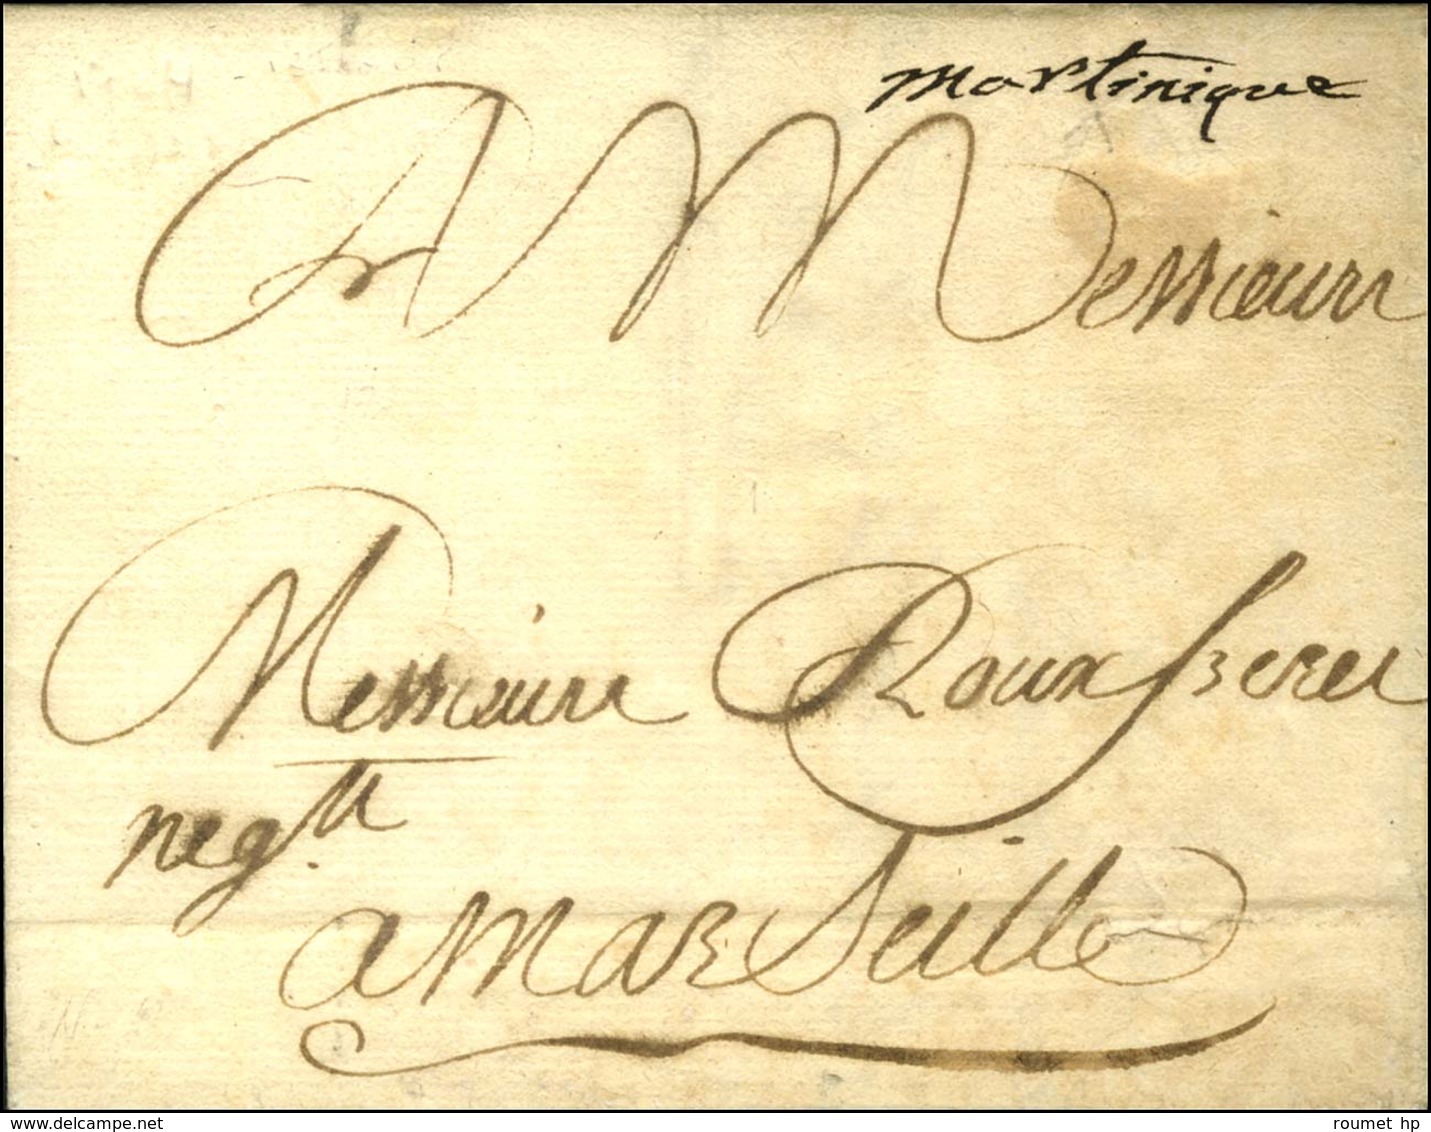 Martinique
A Messieurs
Messieurs Roux freres
negts
a Marseille
www.delcampe.net
roumet hp